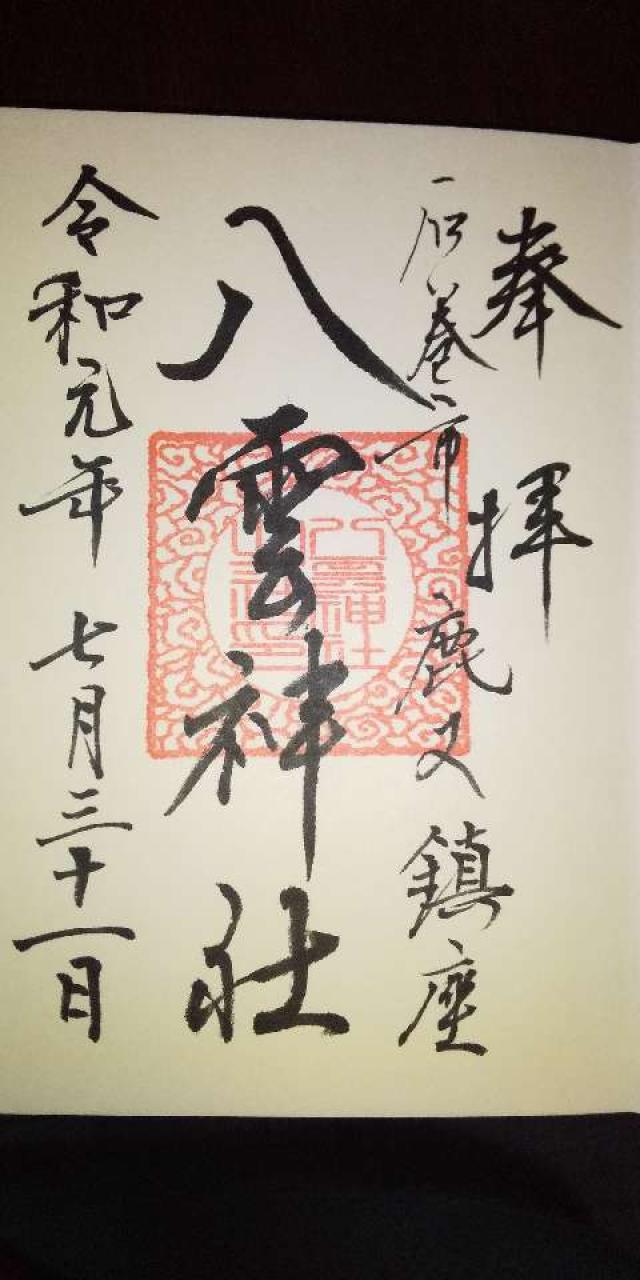 奉拝
石巻市鹿又鎮座
八雲神社
令和元年七月三十一日
八雲神社